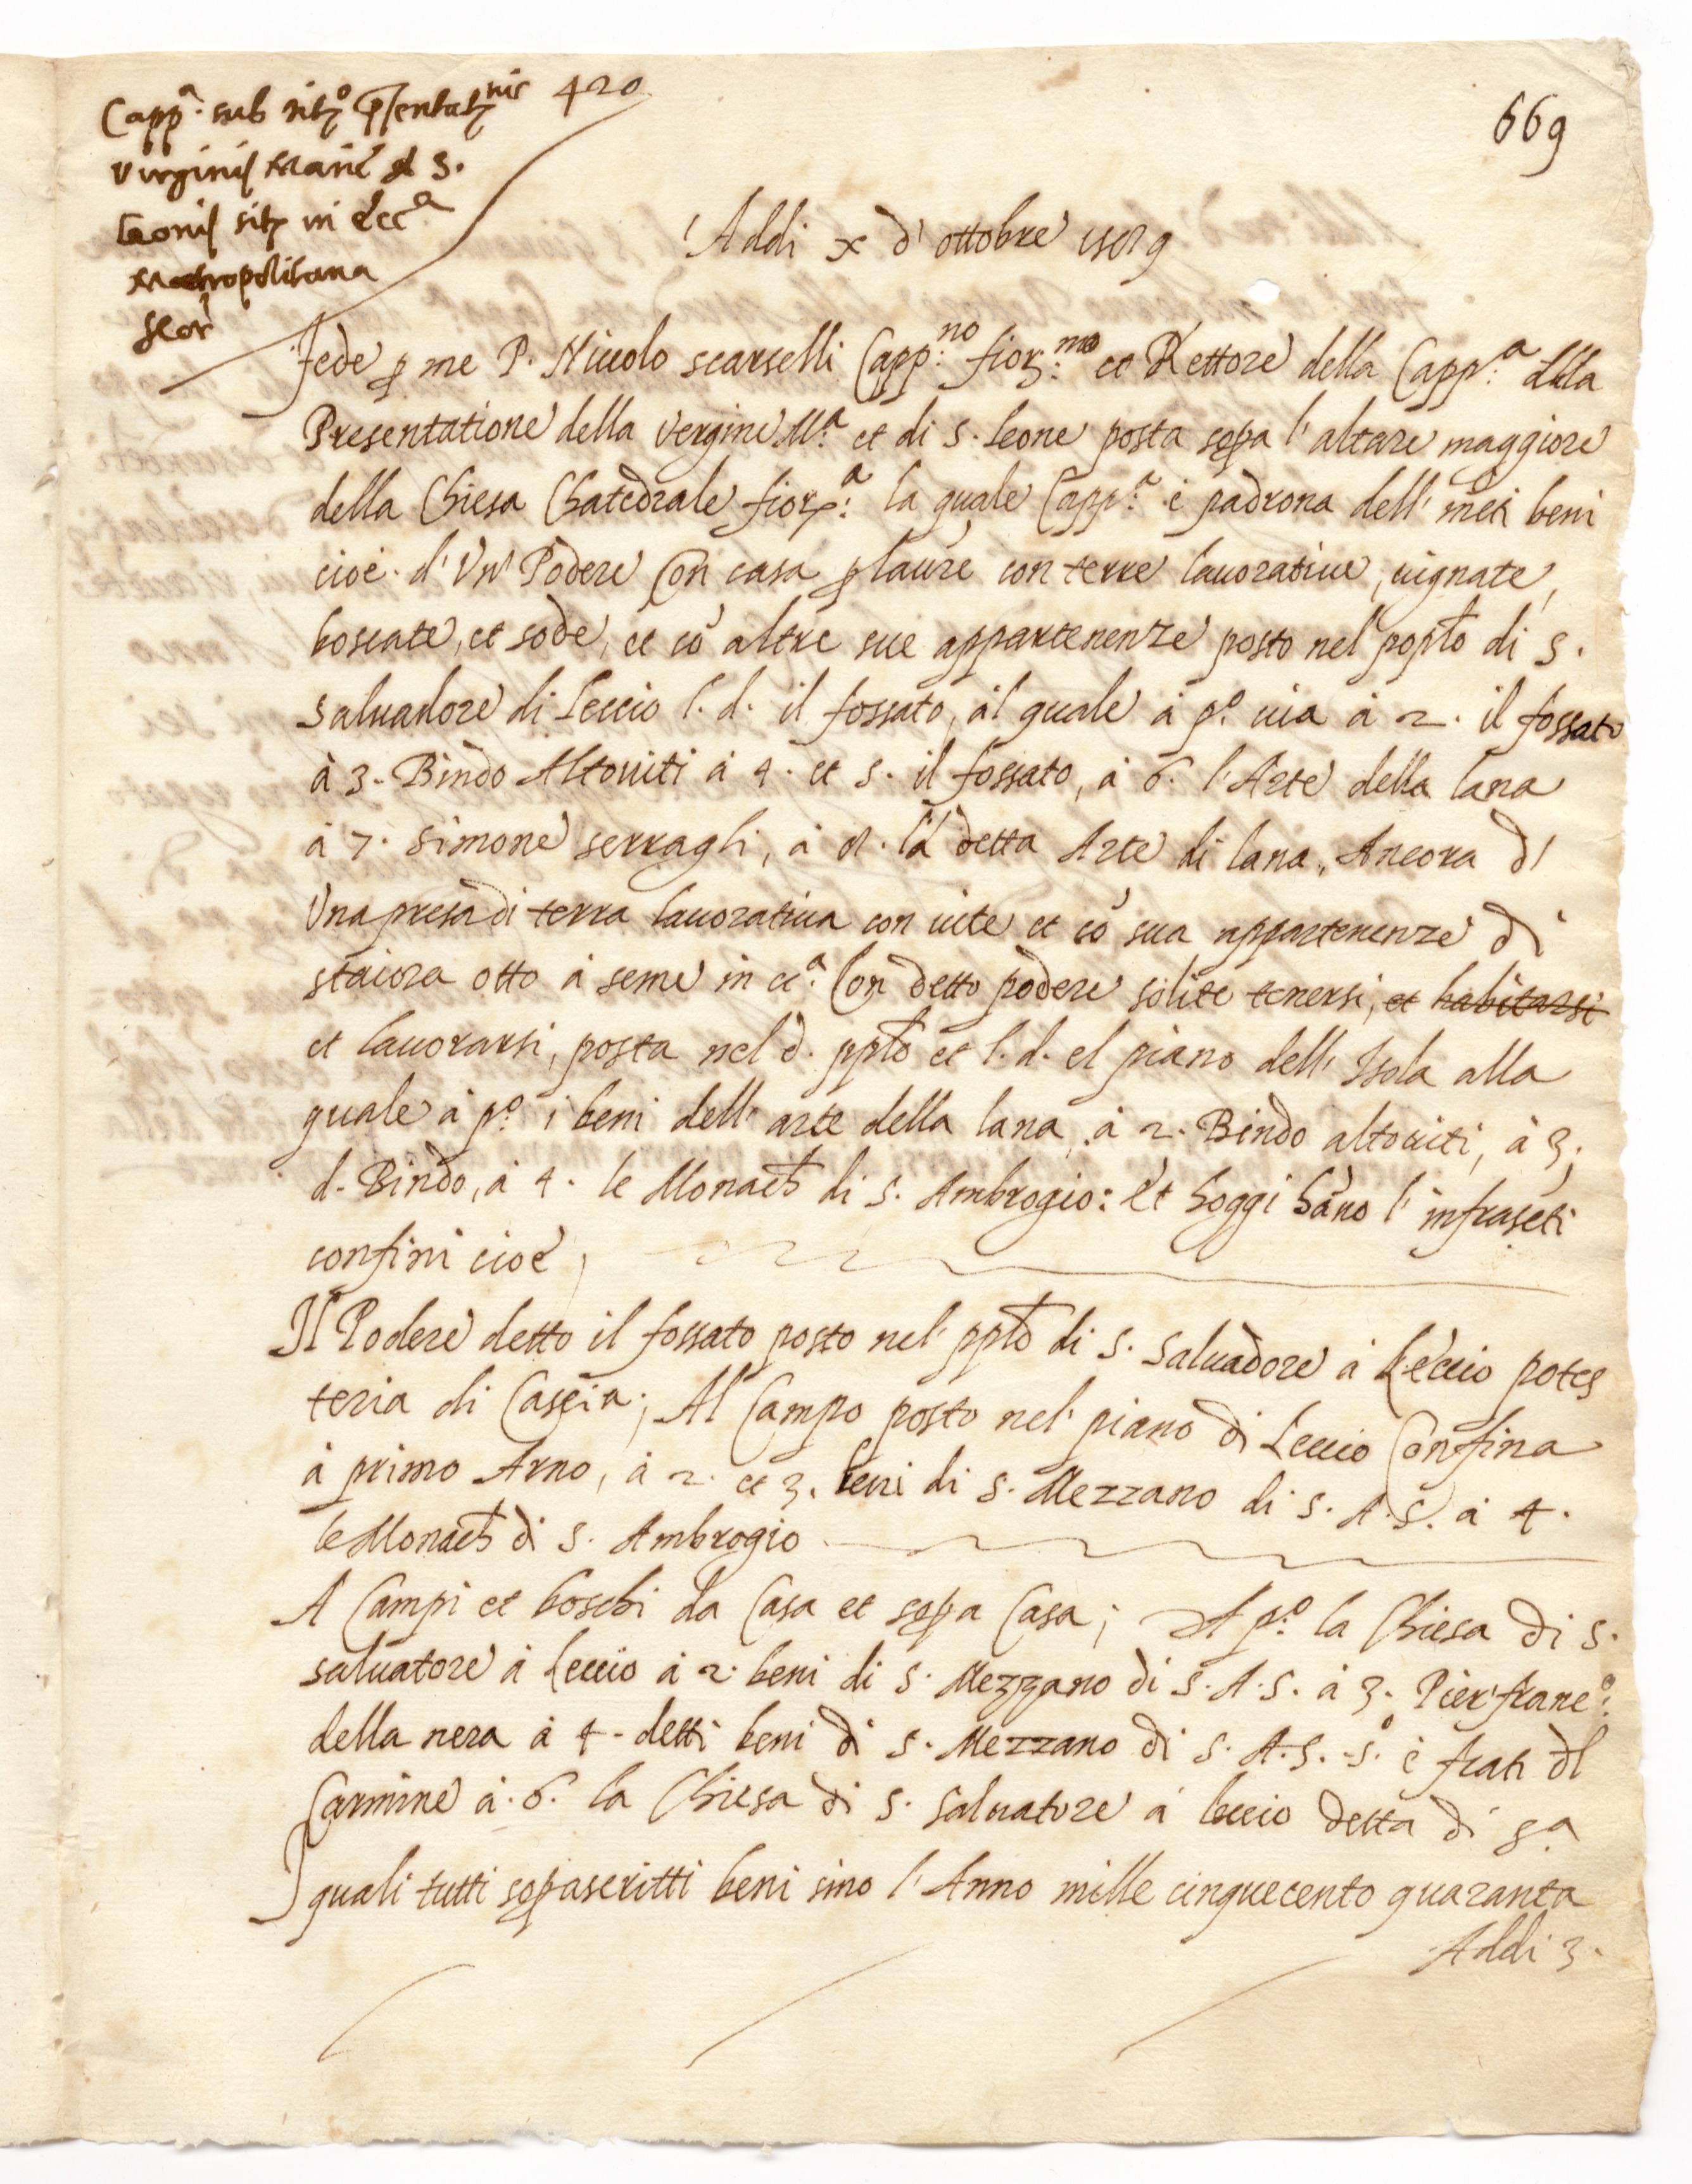 Capp.ª sub titº Pñtentatnis 420
Virginis Marie et S.
Leonis sitꝫ in Eccª
Metropolitana
flor
669
Addi x d' ottobre 1589
Fede p me P. Niccolo scarselli Capp:no fior:mo et Rettore della Capp:ª della
Presentatione della Vergine M:ª et di S. Leone posta sopa l'altare maggiore
della Chiesa Chatedrale fior:ª la quale Capp:ª è padrona dell' infrti beni
cioè. d' Un' Podere Con casa p lavre con terre lavorative, vignate,
boscate, et sode, et cõ altre sue appartenenze posto nel poplo di S.
Salvadore di Leccio l. d. il fossato, al quale à pº. via à 2. il fossato
à 3. Bindo Altoviti à 4. et 5. il fossato, à 6. l'Arte della lana
à 7. Simone serragli, à 8. la detta Arte di lana, Ancora di
Una presa di terra lavorativa con vite et cõ sua appartenenze di
staiora otto à seme in cª. Con detto podere solite tenersi, et habitarsi
et lavorarsi, posta nel d. pplo et l. d. el piano dell' Isola alla
quale à pº. i beni dell' arte della lana, à 2. Bindo altoviti, à 3.
d. Bindo, à 4. le Monach di S. Ambrogio: Et hoggi hãno l' infrascti
confini cioè
Il Podere detto il fossato posto nel' pplo di S. Salvadore à Leccio potes
teria di Cascia; Al Campo posto nel' piano di Leccio Confina
à primo Arno, à 2. et 3. beni di S. Mezzano di S.A.S. à 4.
le Monach di S. Ambrogio
A Campi et boschi da Casa et sopa Casa; A pº. la Chiesa di S.
salvatore à Leccio à 2. beni di S. Mezzano di S.A.S. à 3. Pier' francº:
della nera à 4. detti beni di S. Mezzano di S.A.S. 5º è frati dl
Carmine à. 6. la Chiesa di S. Salvatore à leccio detta di sª
I quali tutti sopascritti beni sino l'Anno mille cinquecento quaranta
Addi 3.